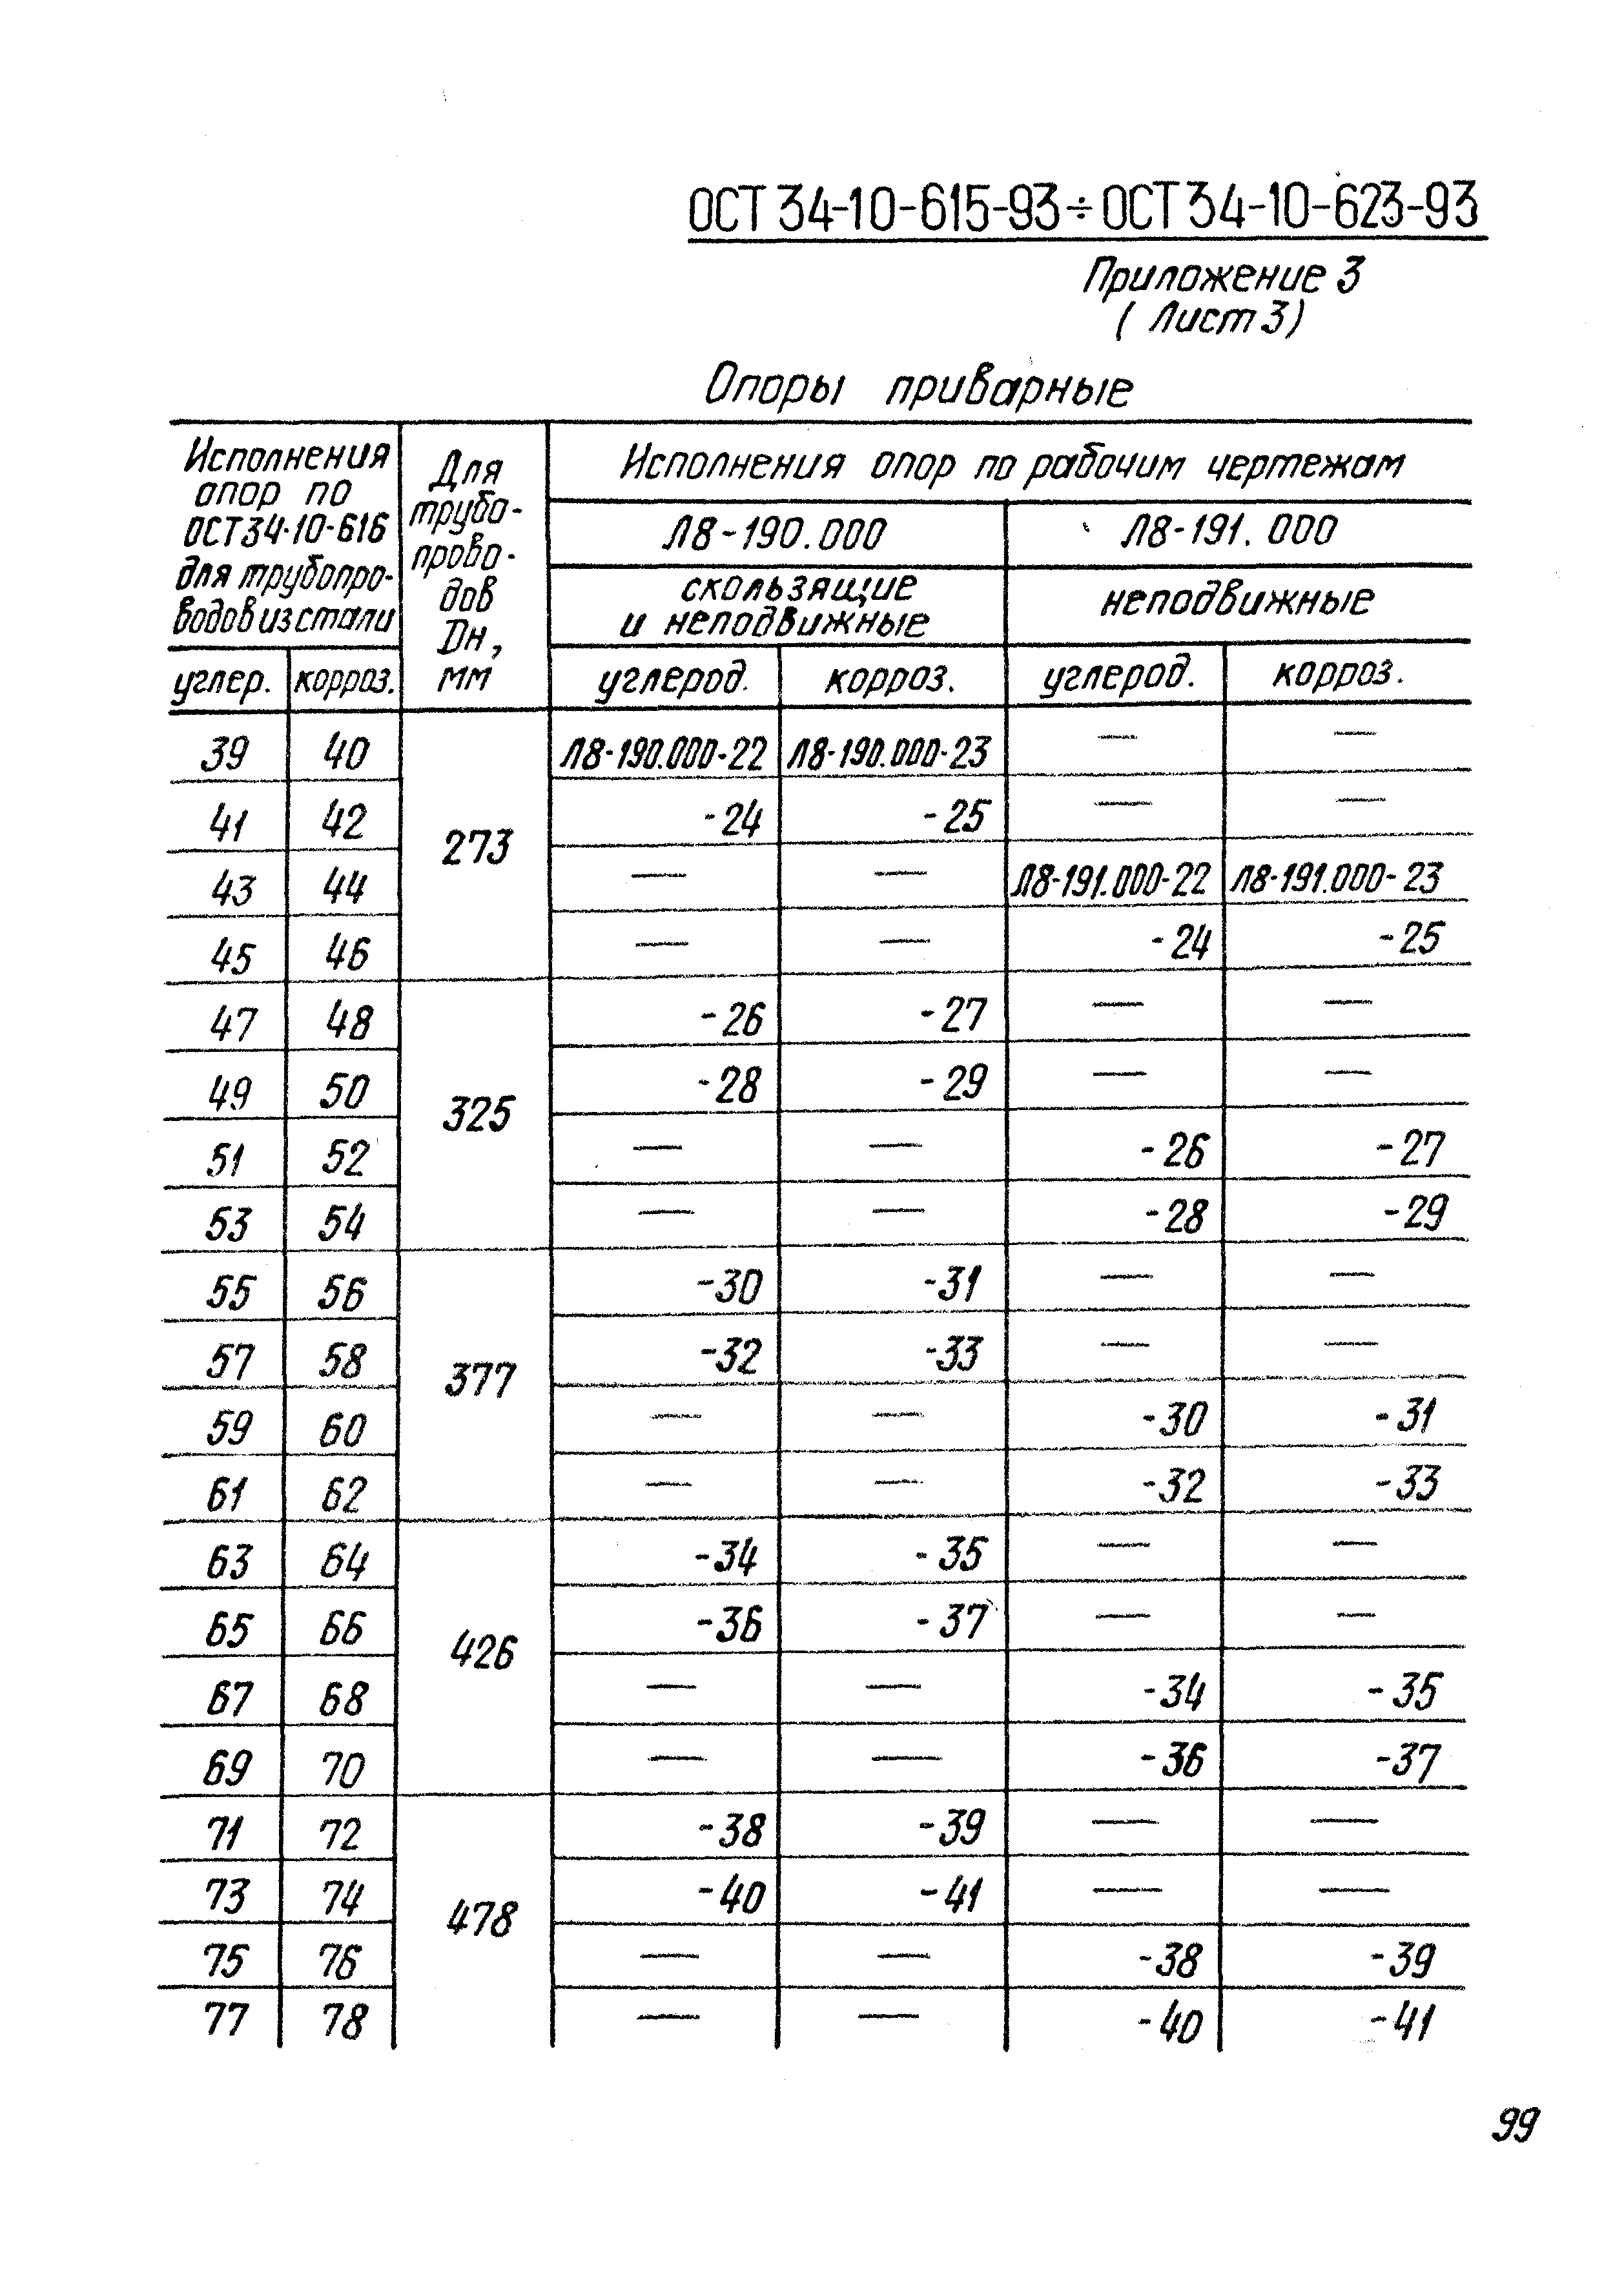 ОСТ 34-10-615-93÷ОСТ 34-10-623-93
Приложение 3
( Лист 3)
Опоры приварные
Исполнения
опор по
ОСТ34-10-616
для трубопро-
водов из стали
Для
трубо-
прово-
дов
Dн,
мм
Исполнения опор по рабочим чертежам
Л8-190.000
Л8-191.000
скользящие
и неподвижные
неподвижные
углер. корроз. углерод. корроз. углерод. корроз.
39 40 Л8-190.000-22 Л8-190.000-23 — —
41 42 -24 -25 — —
273
43 44 — — Л8-191.000-22 Л8-191.000-23
45 46 — — -24 -25
47 48 -26 -27 — —
49 50 -28 -29 — —
325
51 52 — — -26 -27
53 54 — — -28 -29
55 56 -30 -31 — —
57 58 -32 -33 — —
377
59 60 — — -30 -31
61 62 — — -32 -33
63 64 -34 -35 — —
65 66 -36 -37 — —
426
67 68 — — -34 -35
69 70 — — -36 -37
71 72 -38 -39 — —
73 74 -40 -41 — —
478
75 76 — — -38 -39
77 78 — — -40 -41
99